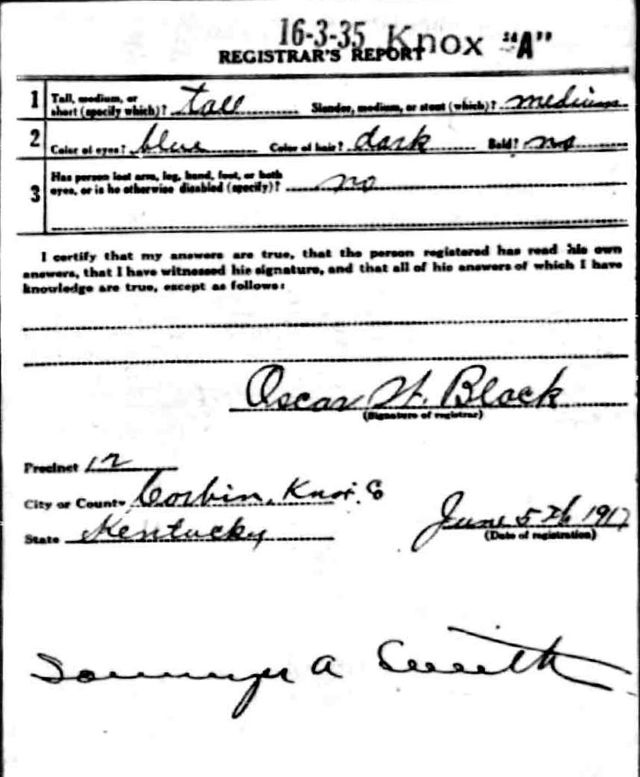 16-3-35 Knox "A"
REGISTRAR'S REPORT
1 Tall, medium, or short (specify which)? tall Slender, medium, or stout (which)? medium
2 Color of eyes? blue Color of hair? dark Bald? no
3 Has person lost arm, leg, hand, foot, or both eyes, or is he otherwise disabled (specify)? no
I certify that my answers are true, that the person registered has read his own
answers, that I have witnessed his signature, and that all of his answers of which I have
knowledge are true, except as follows:
Oscar H. Black
(Signature of registrar)
Precinct 12
City or County Corbin, Knox
State Kentucky
June 5th 1917
(Date of registration)
A Smith